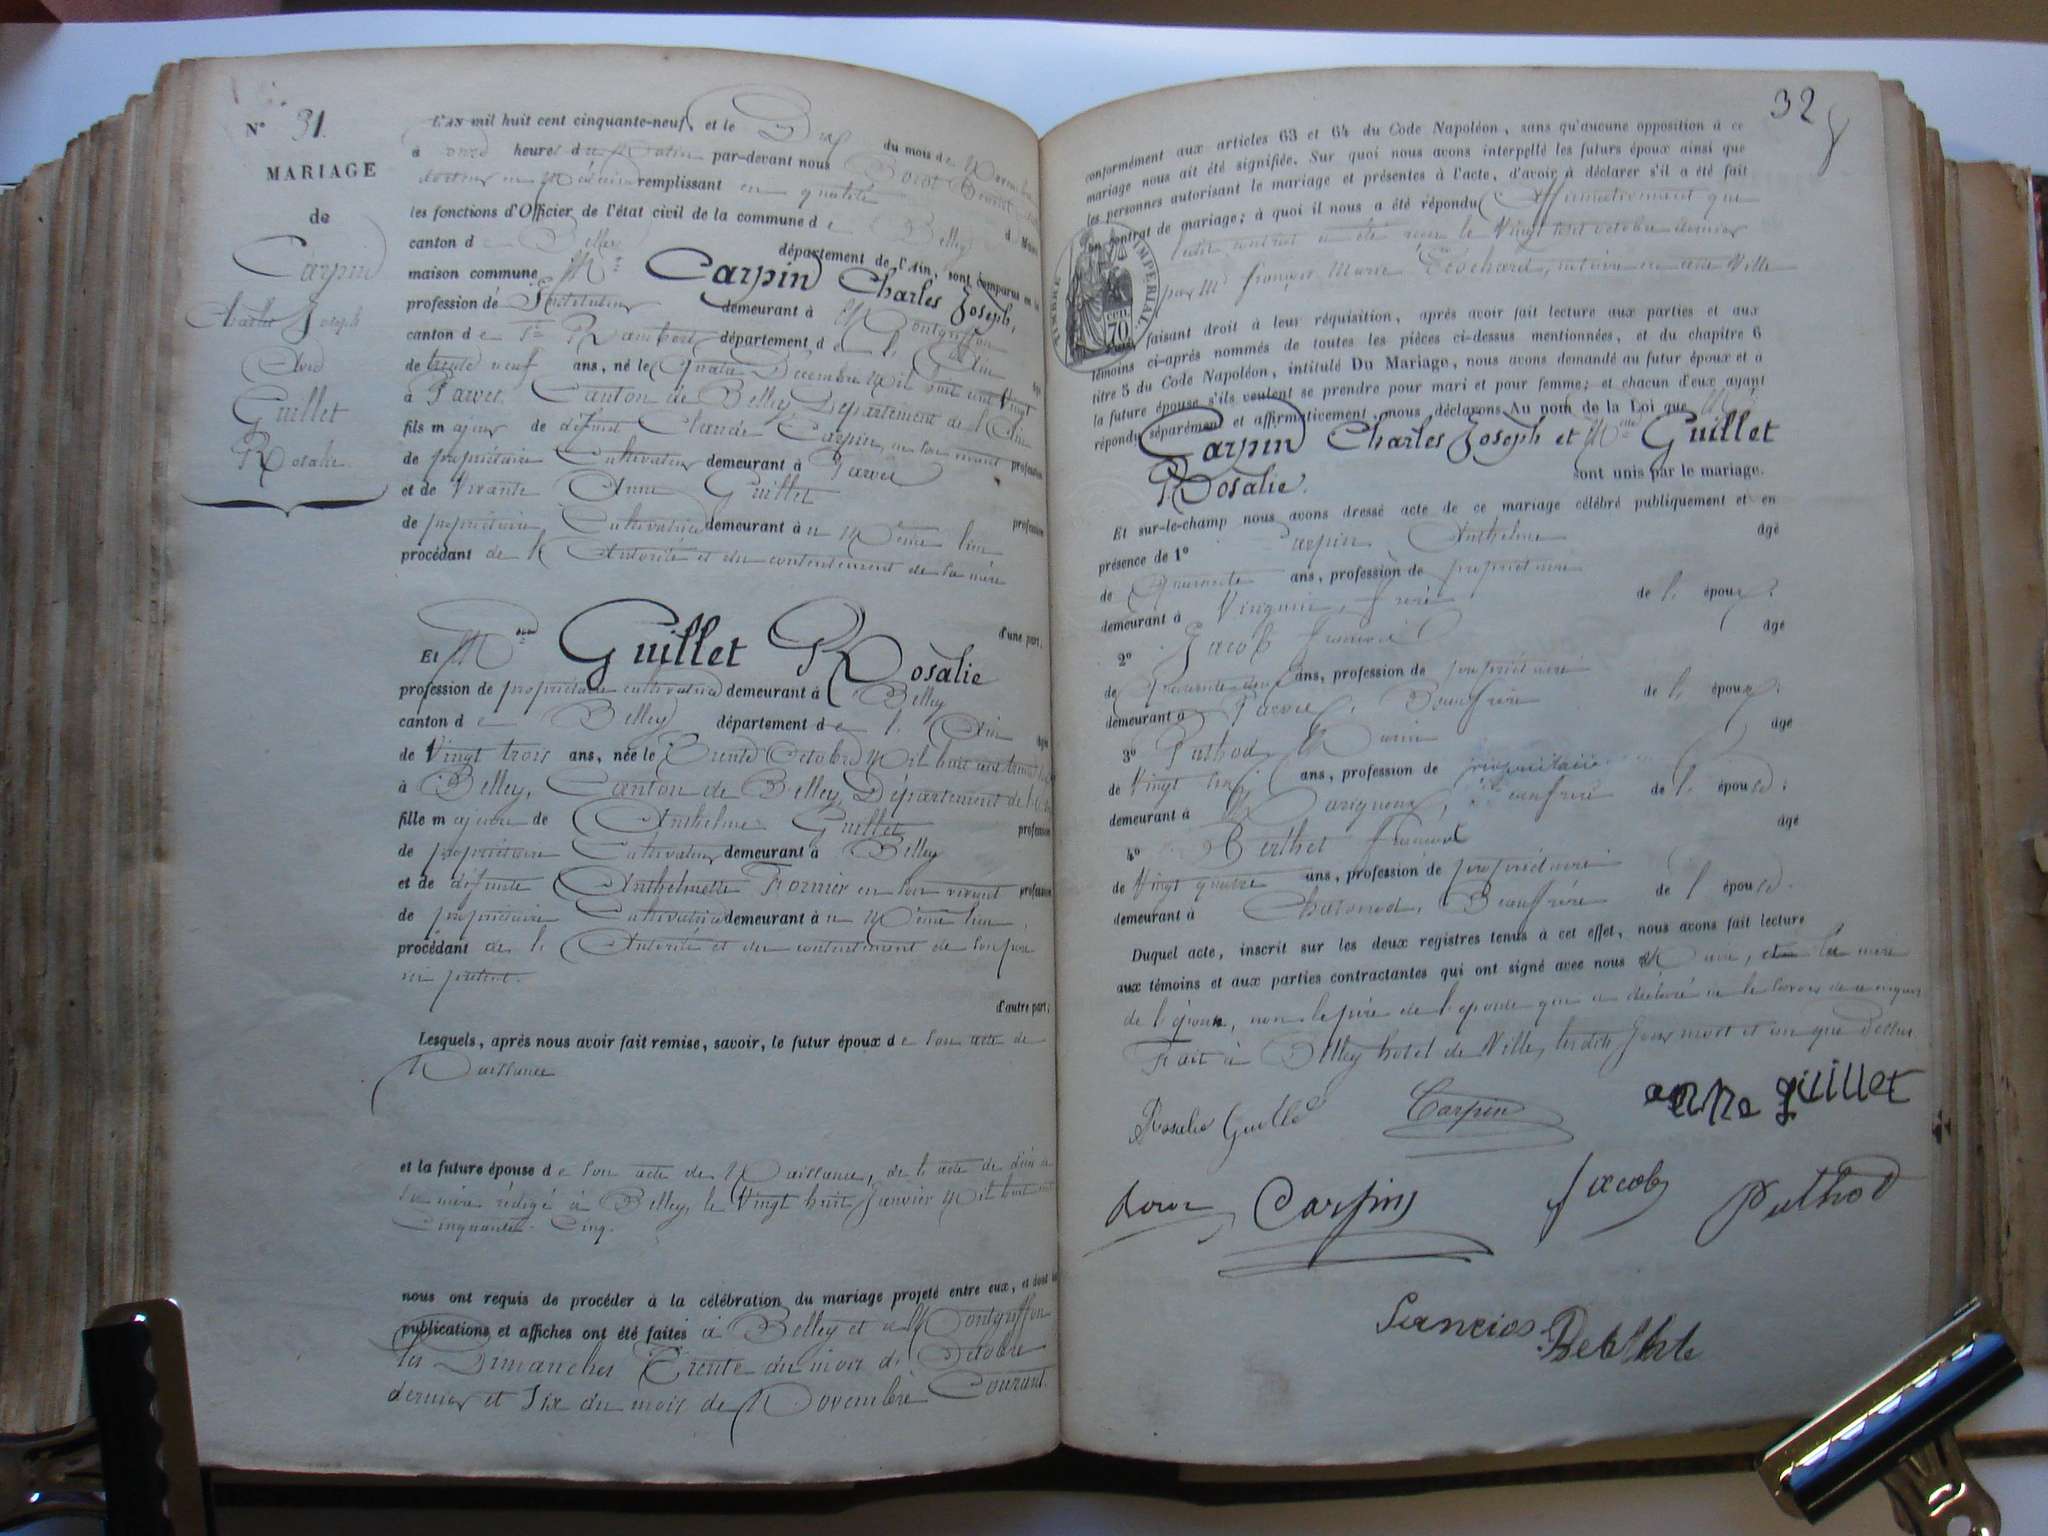 N° 31.
MARIAGE
de
Carpin
Charles Joseph
Avec
Guillet
Rosalie
L'AN mil huit cent cinquante-neuf, et le Dix du mois de Novembre
à onze heures du Matin par-devant nous
docteur en Médecine remplissant en qualité
les fonctions d'Officier de l'état civil de la commune de Belley
canton de Belley département de l'Ain, sont comparus en la
maison commune Mr Carpin Charles Joseph,
profession de Instituteur demeurant à Montgriffon
canton de St Rambert département de l'Ain âgé
de trente neuf ans, né le Quatre Décembre Mil huit cent Vingt
à Parves Canton de Belley, Département de l'Ain
fils majeur de défunt Claude Carpin, en son vivant profession
de propriétaire Cultivateur demeurant à Parves
et de Vivante Anne Guillet profession
de propriétaire Cultivatrice demeurant au Même lieu
procédant de l'Autorité et du contentement de sa mère
d'une part,
Et Melle Guillet Rosalie
profession de propriétaire cultivatrice demeurant à Belley
canton de Belley département de l'Ain âgée
de Vingt trois ans, née le Trente Octobre Mil huit cent
à Belley, Canton de Belley, Département de l'Ain
fille majeure de Anthelme Guillet profession
de propriétaire Cultivateur demeurant à Belley
et de défunte Anthelmette Fornier en son vivant profession
de propriétaire Cultivatrice demeurant au Même lieu,
procédant de l'Autorité et du contentement de son père
ici présent.
d'autre part;
Lesquels, après nous avoir fait remise, savoir, le futur époux de son acte de
Naissance
et la future épouse de son acte de Naissance, de l'acte de décès de
sa mère rédigé à Belley, le Vingt huit Janvier Mil huit cent
Cinquante-Cinq.
nous ont requis de procéder à la célébration du mariage projeté entre eux, et dont les
publications et affiches ont été faites à Belley et à Montgriffon
les Dimanches Trente du mois d'Octobre
dernier et Six du mois de Novembre Courant.
32
conformément aux articles 63 et 64 du Code Napoléon, sans qu'aucune opposition à ce
mariage nous ait été signifiée. Sur quoi nous avons interpellé les futurs époux ainsi que
les personnes autorisant le mariage et présentes à l'acte, d'avoir à déclarer s'il a été fait
un contrat de mariage; à quoi il nous a été répondu Affirmativement que
ledit contrat a été reçu le Vingt sept octobre dernier
par Me François Marie notaire en cette Ville
TIMBRE IMPÉRIAL.
70 CEN.
faisant droit à leur réquisition, après avoir fait lecture aux parties et aux
témoins ci-après nommés de toutes les pièces ci-dessus mentionnées, et du chapitre 6
titre 5 du Code Napoléon, intitulé Du Mariage, nous avons demandé au futur époux et à
la future épouse s'ils veulent se prendre pour mari et pour femme; et chacun d'eux ayant
répondu séparément et affirmativement, nous déclarons Au nom de la Loi que Mr
Carpin Charles Joseph et Melle Guillet
Rosalie. sont unis par le mariage.
Et sur-le-champ nous avons dressé acte de ce mariage célébré publiquement et en
présence de 1° Carpin Anthelme âgé
de Quarante ans, profession de propriétaire
demeurant à frère de l'époux;
2° Jacob François âgé
de Quarante deux ans, profession de propriétaire
demeurant à Parves, Beaufrère de l'époux;
3° Puthod Marin âgé
de Vingt ans, profession de propriétaire
demeurant à Marignieux, Beaufrère de l'épouse;
4° Berthet François âgé
de Vingt quatre ans, profession de propriétaire
demeurant à Chazonod, Beaufrère de l'épouse.
Duquel acte, inscrit sur les deux registres tenus à cet effet, nous avons fait lecture
aux témoins et aux parties contractantes qui ont signé avec nous Maire, et la mère
de l'époux, non le père de l'épouse qui a déclaré ne le savoir de ce enquis
Fait à Belley hotel de Ville, lesdits jours mois et an que dessus.
Rosalie Guillet Carpin anne guillet
Carpin Jacob Puthod
Francois Berthet